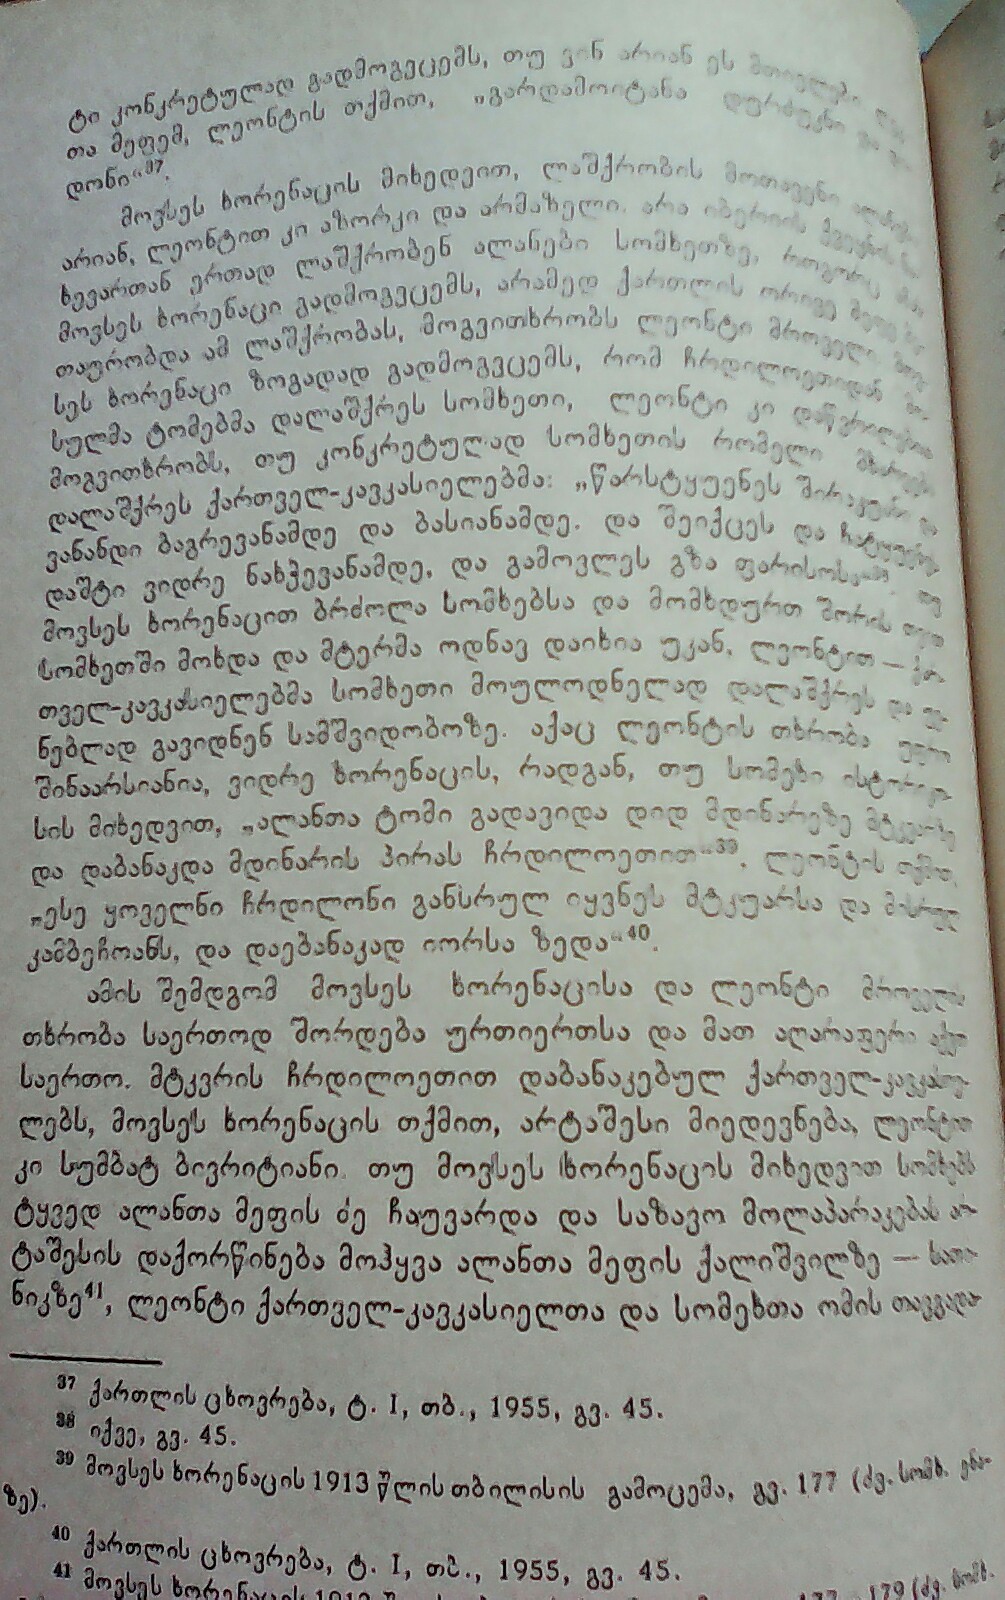 ტი კონკრეტულად გადმოგვცემს, თუ ვინ არიან ეს მთიელები
თა მეფემ, ლეონტის თქმით, „გარდამოიტანა დურძუკნი და
დონი“37.
მოვსეს ხორენაცის მიხედვით, ლაშქრობის მოთავენი ალანები
არიან, ლეონტით კი აზორკი და არმაზელი. არა იბერიის
ხევართან ერთად ლაშქრობენ ალანები სომხეთზე, როგორც
მოვსეს ხორენაცი გადმოგვცემს, არამედ ქართლის ორივე მეფე
თაურობდა ამ ლაშქრობას, მოგვითხრობს ლეონტი მროველი.
სეს ხორენაცი ზოგადად გადმოგვცემს, რომ ჩრდილოეთიდან
სულმა ტომებმა დალაშქრეს სომხეთი, ლეონტი კი დაწვრილებით
მოგვითხრობს, თუ კონკრეტულად სომხეთის რომელი მხარეები
დალაშქრეს ქართველ-კავკასიელებმა: „წარსტყუენეს შირაკუანი და
ვანანდი ბაგრევანამდე და ბასიანამდე. და შეიქცეს და
დაშტი ვიდრე ნახჭევანამდე, და გამოვლეს გზა ფარისოსა“38. თუ
მოვსეს ხორენაცით ბრძოლა სომხებსა და მომხდურთ შორის
სომხეთში მოხდა და მტერმა ოდნავ დაიხია უკან, ლეონტით — ქარ-
თველ-კავკასიელებმა სომხეთი მოულოდნელად დალაშქრეს და
ნებლად გავიდნენ სამშვიდობოზე. აქაც ლეონტის თხრობა უფრო
შინაარსიანია, ვიდრე ხორენაცის, რადგან, თუ სომეხი ისტორიკო-
სის მიხედვით, „ალანთა ტომი გადავიდა დიდ მდინარეზე მტკვარზე
და დაბანაკდა მდინარის პირას ჩრდილოეთით“39, ლეონტის თქმით,
„ესე ყოველნი ჩრდილონი განსრულ იყვნეს მტკუარსა და მისრულ
კამბეჩოანს, და დაებანაკად იორსა ზედა“40.
ამის შემდგომ მოვსეს ხორენაცისა და ლეონტი მროველის
თხრობა საერთოდ შორდება ურთიერთსა და მათ აღარაფერი აქვთ
საერთო. მტკვრის ჩრდილოეთით დაბანაკებულ ქართველ-კავკასიე-
ლებს, მოვსეს ხორენაცის თქმით, არტაშესი მიედევნება, ლეონტით
კი სუმბატ ბივრიტიანი. თუ მოვსეს ხორენაცის მიხედვით სომხებს
ტყვედ ალანთა მეფის ძე ჩაუვარდა და საზავო მოლაპარაკებას არ-
ტაშესის დაქორწინება მოჰყვა ალანთა მეფის ქალიშვილზე — სათი-
ნიკზე41, ლეონტი ქართველ-კავკასიელთა და სომეხთა ომის თავგადა-
37 ქართლის ცხოვრება, ტ. I, თბ., 1955, გვ. 45.
38 იქვე, გვ. 45.
39 მოვსეს ხორენაცის 1913 წლის თბილისის გამოცემა, გვ. 177 (ძვ. სომხ. ენა-
ზე).
40 ქართლის ცხოვრება, ტ. I, თბ., 1955, გვ. 45.
41 მოვსეს ხორენაცის 1913 177—179 (ძვ. სომხ.